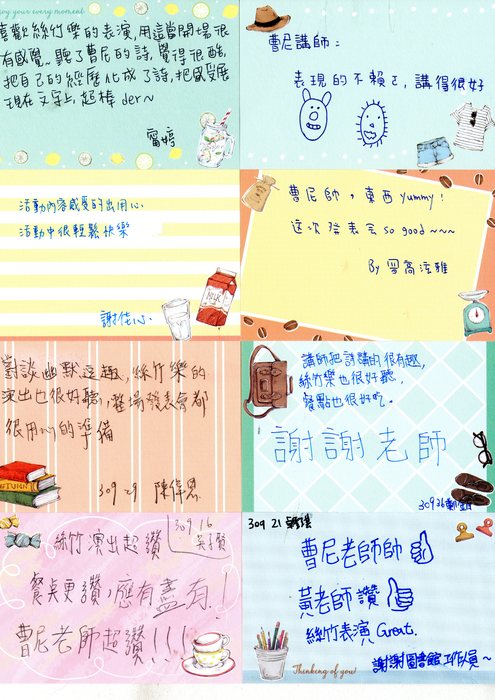 joy your every moment
喜歡絲竹樂的表演,用這當開場很
有感覺~聽了曹尼的詩,覺得很酷,
把自己的經歷化成了詩,把感受展
現在文字上,超棒der~
甯婷
曹尼講師:
表現的不賴ㄛ,講得很好
活動內容感覺的出用心
活動中很輕鬆快樂
謝佳心.
MILK
曹尼帥,東西yummy!
這次發表会so good~~~
By
對談幽默逗趣,絲竹樂的
演出也很好聽,整場發表會都
很用心的準備
309 29 陳偉恩
AUTUMN
講師把詩講的很有趣,
絲竹樂也很好聽.
餐點也很好吃.
謝謝老師
309 26
309 16
絲竹演出超讚
餐桌更讚,應有盡有!
曹尼老師超讚!!!
309 21
曹尼老師帥
黃老師讚
絲竹表演 Great.
謝謝圖書館工作人員~
Thinking of you!